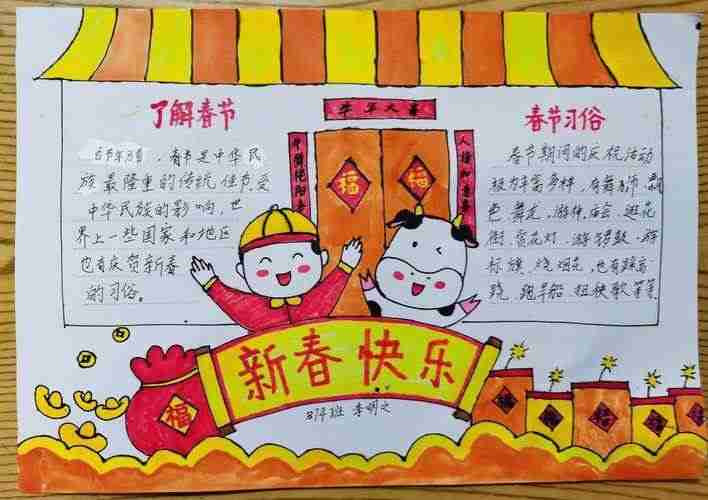 了解春节
春节是中华民
族最隆重的传统佳节受
中华民族的影响,世
界上一些国家和地区
也有庆贺新春
的习俗。
牛年大吉
福
福
春节习俗
春节期间的庆祝活动
极为丰富多样,有舞狮、飘
色、舞龙、游神、庙会、逛花
街、赏花灯、游锣鼓、游
标旗、烧烟花、也有踩高
跷、跑旱船、扭秧歌等等
新春快乐
福
班 李明